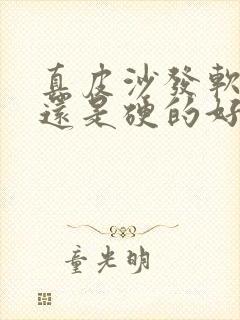 真皮沙發軟
還是硬的好
童光明